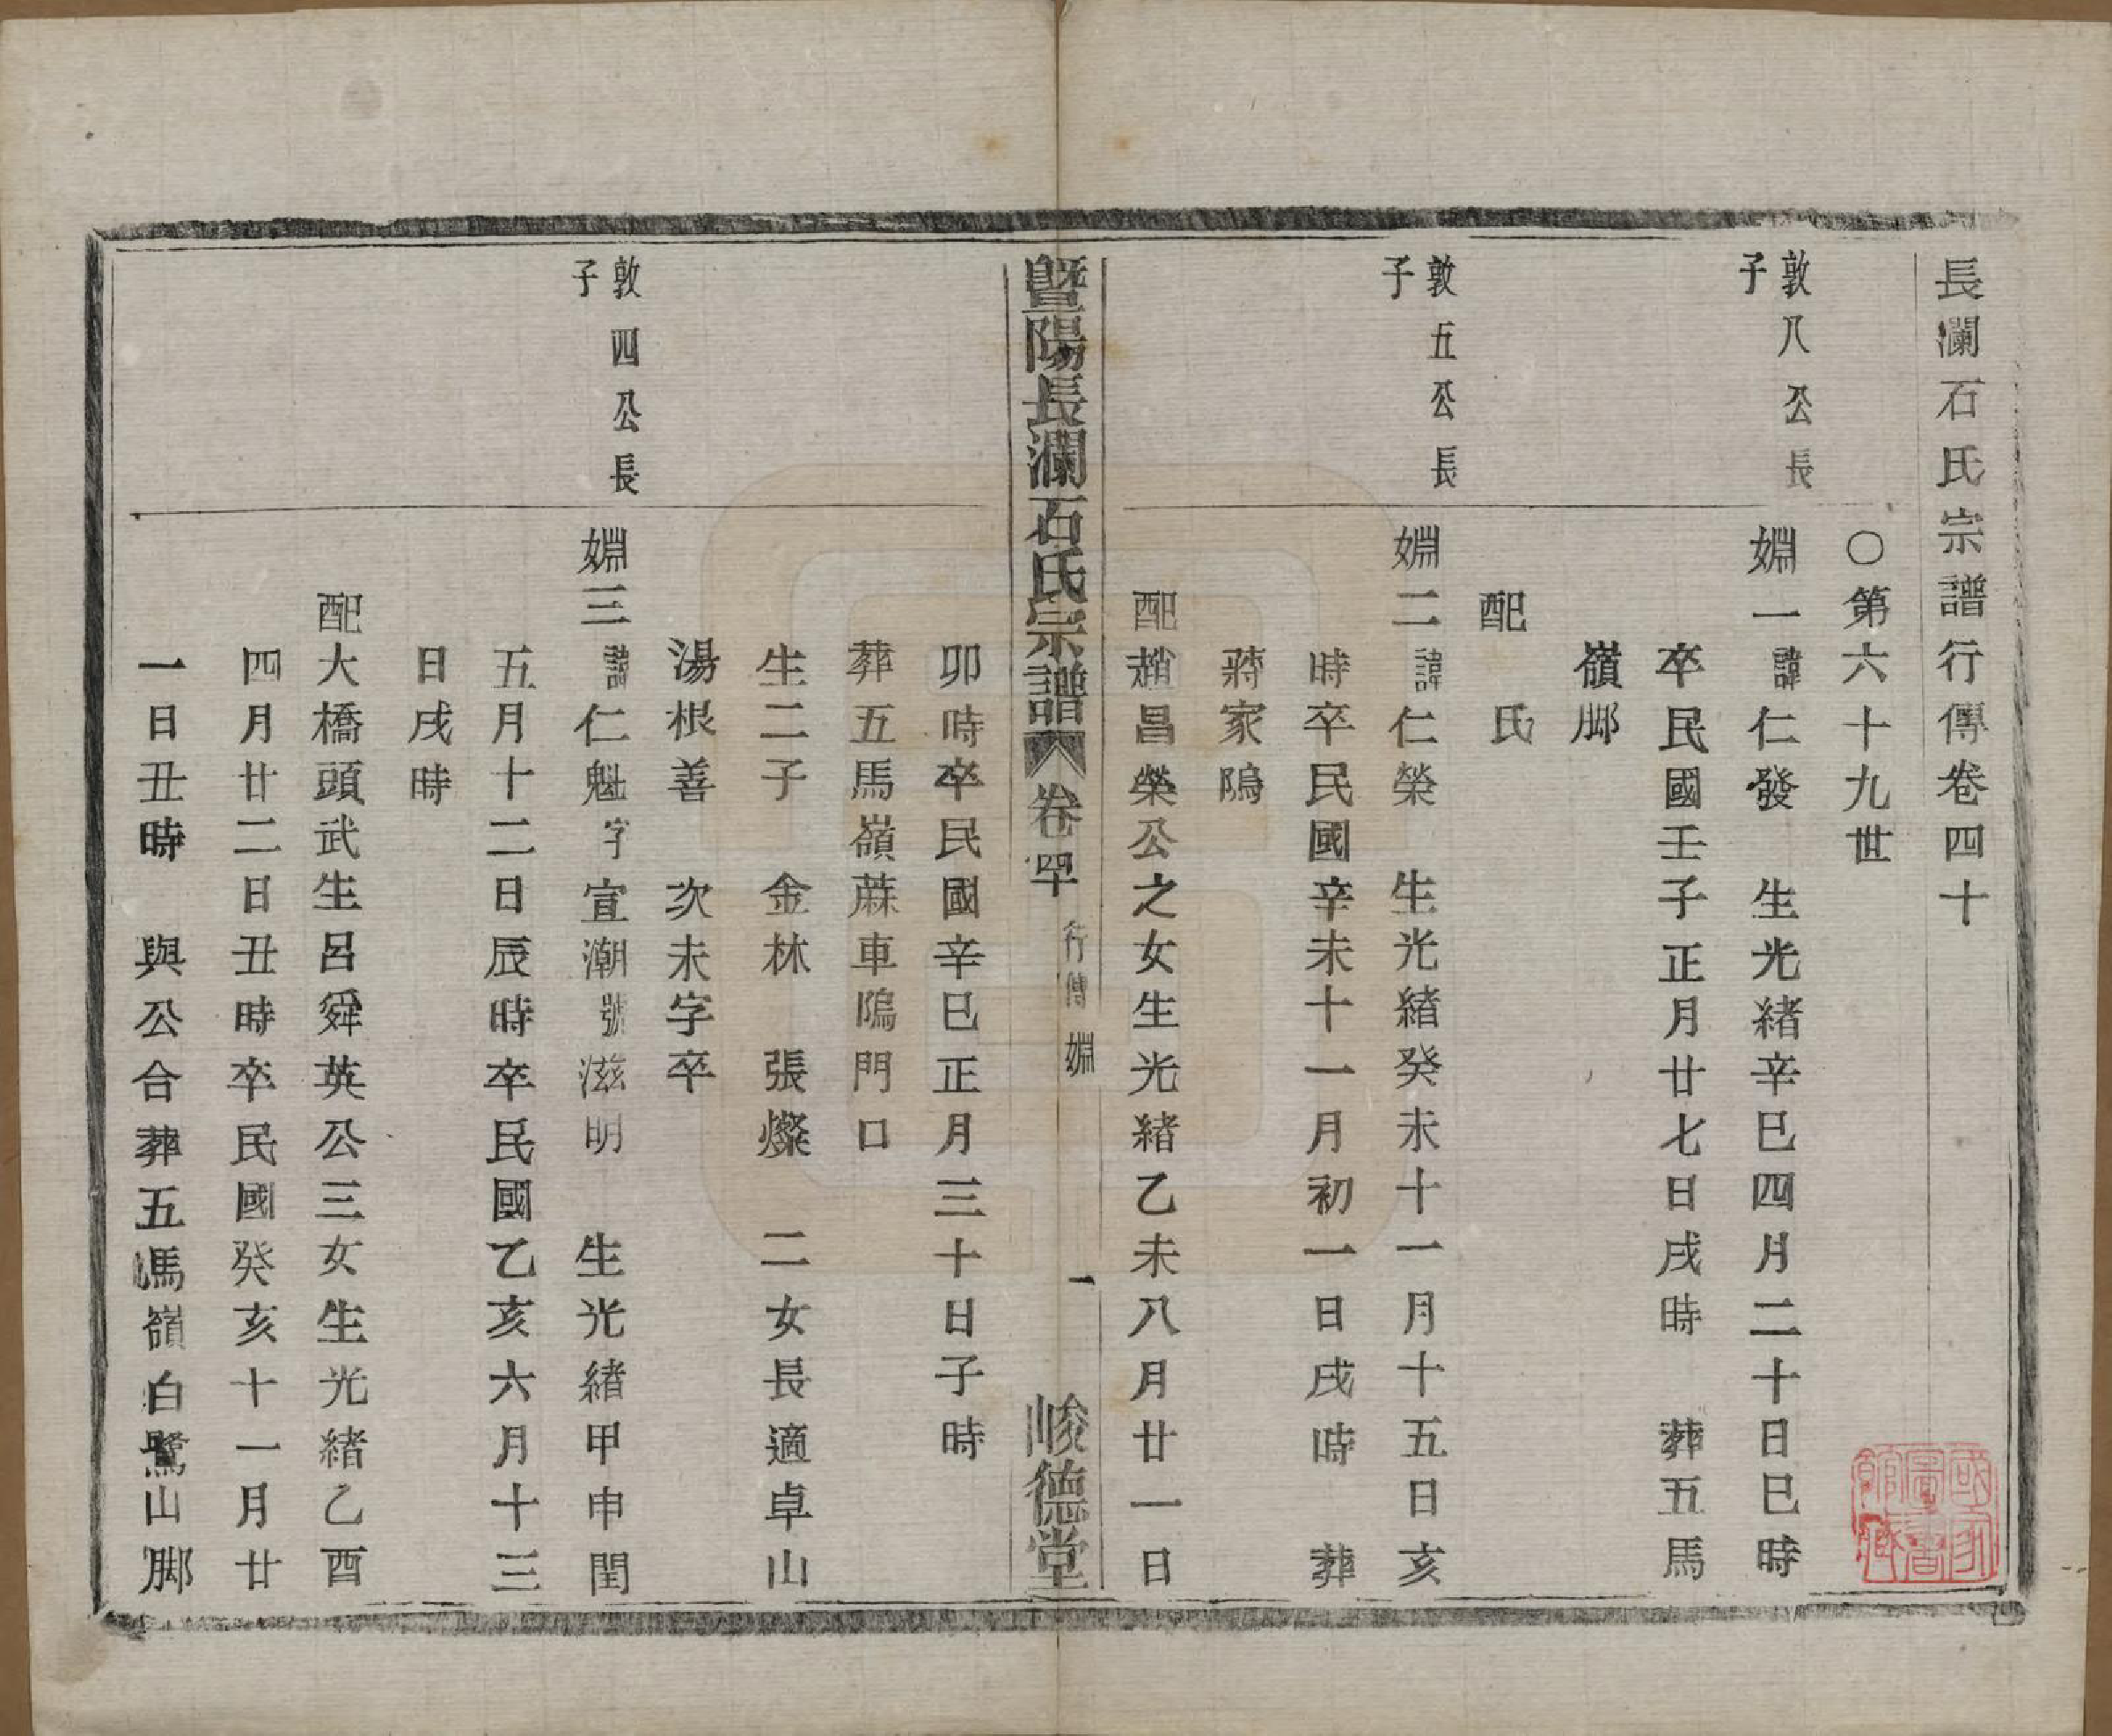 長瀾石氏宗譜行傳卷四十
○第六十九世
敦八公長子
嫻一諱仁發　生光緒辛巳四月二十日巳時
卒民國壬子正月廿七日戌時　葬五馬
嶺脚
配　氏
敦五公長子
嫻二諱仁榮　生光緒癸未十一月十五日亥
時卒民國辛未十一月初一日戌時　葬
蔣家隖
配趙昌榮公之女生光緒乙未八月廿一日
暨陽長瀾石氏宗譜　卷四十　行傳　嫻　一　峻德堂
卯時卒民國辛巳正月三十日子時
葬五馬嶺蔴車隖門口
生二子　金林　張燦　二女長適卓山
湯根善　次未字卒
敦四公長子
嫻三諱仁魁字宣潮號滋明　生光緒甲申閏
五月十二日辰時卒民國乙亥六月十三
日戌時
配大橋頭武生呂舜英公三女生光緒乙酉
四月廿二日丑時卒民國癸亥十一月廿
一日丑時　與公合葬五馬嶺白鷺山脚
國家圖書館藏